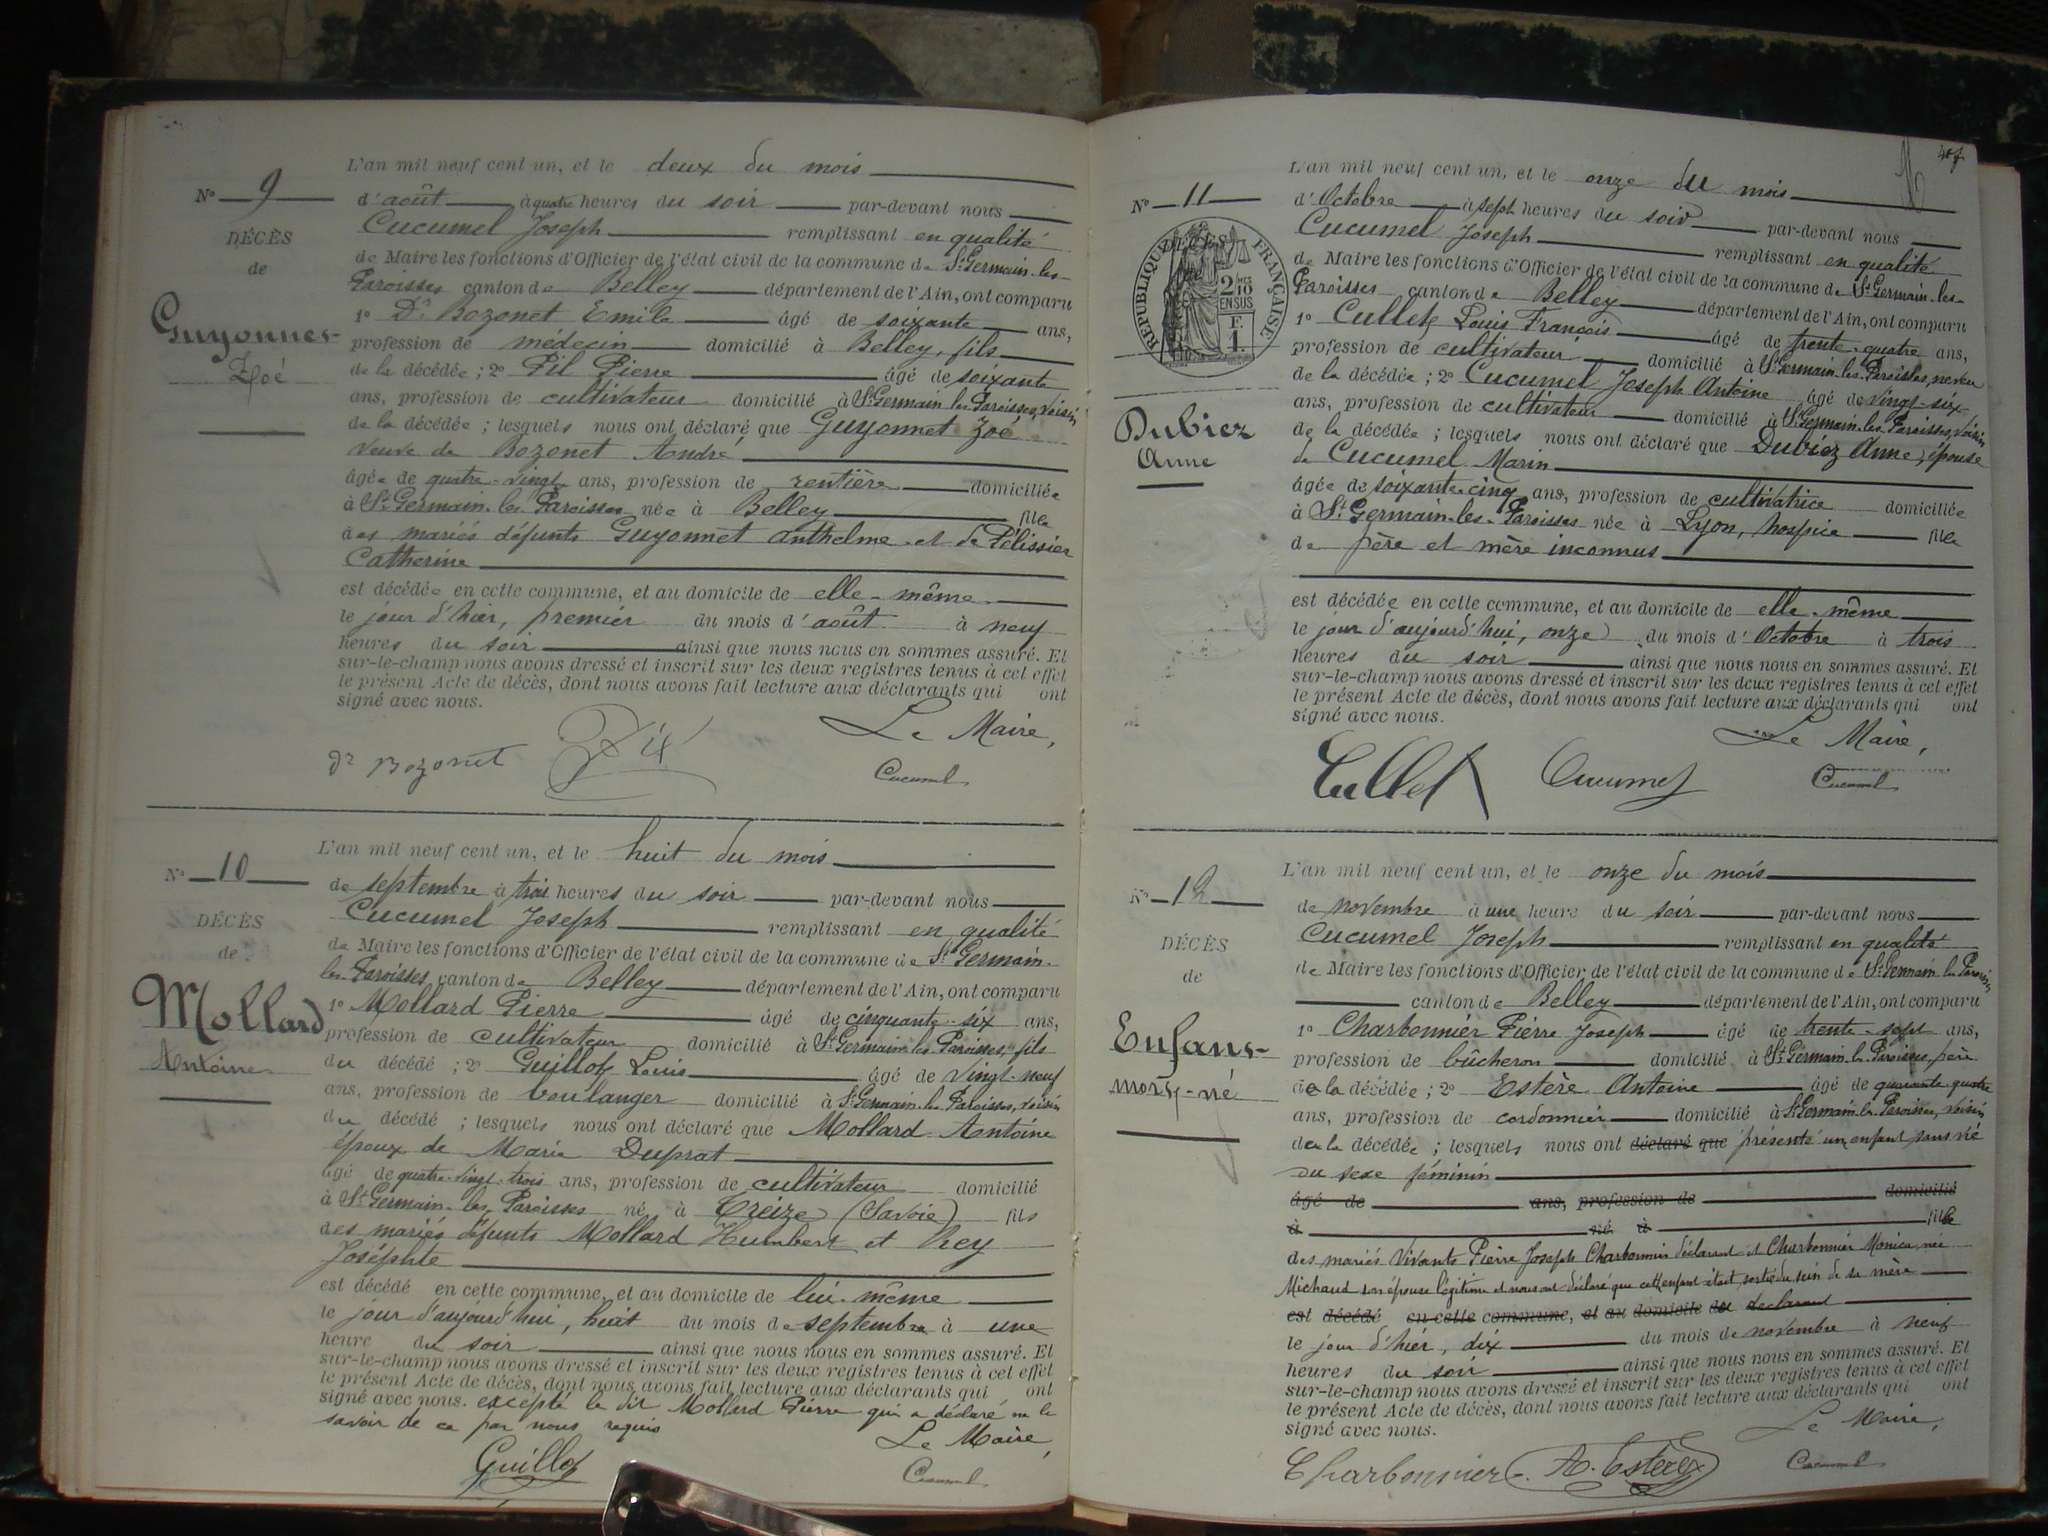 L'an mil neuf cent un, et le deux du mois
N° 9 d'août à quatre heures du soir par-devant nous
Cucumel Joseph remplissant en qualité
DÉCÈS
de
de Maire les fonctions d'Officier de l'état civil de la commune de St Germain-les-
Paroisses canton de Belley département de l'Ain, ont comparu
Guyonnet
Zoé
1° Dr Bozonet Emile âgé de soixante ans,
profession de médecin domicilié à Belley, fils
de la décédée ; 2° Pil Pierre âgé de soixante
ans, profession de cultivateur domicilié à St Germain les Paroisses, voisin
de la décédée ; lesquels nous ont déclaré que Guyonnet Zoé
veuve de Bozonet André
âgée de quatre-vingt ans, profession de rentière domiciliée
à St Germain-les Paroisses née à Belley fille
des mariés défunts Guyonnet Anthelme et de Pélissier
Catherine
est décédée en cette commune, et au domicile de elle-même
le jour d'hier, premier du mois d'août à neuf
heures du soir ainsi que nous nous en sommes assuré. Et
sur-le-champ nous avons dressé et inscrit sur les deux registres tenus à cet effet
le présent Acte de décès, dont nous avons fait lecture aux déclarants qui ont
signé avec nous.
Le Maire,
dr Bozonet Cucumel
L'an mil neuf cent un, et le huit du mois
N° 10 de septembre à trois heures du soir par-devant nous
Cucumel Joseph remplissant en qualité
DÉCÈS
de
de Maire les fonctions d'Officier de l'état civil de la commune de St Germain-
les-Paroisses canton de Belley département de l'Ain, ont comparu
Mollard
Antoine
1° Mollard Pierre âgé de cinquante-six ans,
profession de cultivateur domicilié à St Germain-les Paroisses, fils
du décédé ; 2° Guillot Louis âgé de vingt-neuf
ans, profession de boulanger domicilié à St Germain-les Paroisses, voisin
du décédé ; lesquels nous ont déclaré que Mollard Antoine
époux de Marie Duprat
âgé de quatre-vingt-trois ans, profession de cultivateur domicilié
à St Germain-les Paroisses né à Treize (Savoie) fils
des mariés défunts Mollard Humbert et Rey
Joséphte
est décédé en cette commune, et au domicile de lui-même
le jour d'aujourd'hui, huit du mois de septembre à une
heure du soir ainsi que nous nous en sommes assuré. Et
sur-le-champ nous avons dressé et inscrit sur les deux registres tenus à cet effet
le présent Acte de décès, dont nous avons fait lecture aux déclarants qui ont
signé avec nous. excepté le dit Mollard Pierre qui a déclaré ne le
savoir de ce par nous requis
Le Maire,
Guillot Cucumel
L'an mil neuf cent un, et le onze du mois
N° 11 d'Octobre à sept heures du soir par-devant nous
Cucumel Joseph remplissant en qualité
DÉCÈS
RÉPUBLIQUE FRANÇAISE
2/10
EN SUS
F.
1.
de Maire les fonctions d'Officier de l'état civil de la commune de St Germain-les-
Paroisses canton de Belley département de l'Ain, ont comparu
1° Cullet Louis François âgé de trente-quatre ans,
profession de cultivateur domicilié à St Germain-les-Paroisses, neveu
de la décédée ; 2° Cucumel Joseph Antoine âgé de vingt-six
Dubiez
Anne
ans, profession de cultivateur domicilié à St Germain-les Paroisses, voisin
de la décédée ; lesquels nous ont déclaré que Dubiez Anne, épouse
de Cucumel Marin
âgée de soixante-cinq ans, profession de cultivatrice domiciliée
à St Germain-les-Paroisses née à Lyon, hospice fille
de père et mère inconnus
est décédée en cette commune, et au domicile de elle-même
le jour d'aujourd'hui, onze du mois d'Octobre à trois
heures du soir ainsi que nous nous en sommes assuré. Et
sur-le-champ nous avons dressé et inscrit sur les deux registres tenus à cet effet
le présent Acte de décès, dont nous avons fait lecture aux déclarants qui ont
signé avec nous.
Le Maire,
Cullet Cucumel Cucumel
L'an mil neuf cent un, et le onze du mois
N° 12 de novembre à une heure du soir par-devant nous
Cucumel Joseph remplissant en qualité
DÉCÈS
de
de Maire les fonctions d'Officier de l'état civil de la commune de St Germain-les Paroisses
canton de Belley département de l'Ain, ont comparu
Enfant
mort-né
1° Charbonnier Pierre Joseph âgé de trente-sept ans,
profession de bûcheron domicilié à St Germain-les-Paroisses, père
de la décédée ; 2° Estère Antoine âgé de quarante-quatre
ans, profession de cordonnier domicilié à St Germain-les Paroisses, voisin
de la décédée ; lesquels nous ont déclaré que présenté un enfant sans vie
du sexe féminin
âgé de ans, profession de domicilié
à né à fille
des mariés vivants Pierre Joseph Charbonnier déclarant et Charbonnier Monica, née
Michaud son épouse légitime et nous ont déclaré que cet enfant était sorti du sein de sa mère
est décédé en cette commune, et au domicile du declarant
le jour d'hier, dix du mois de novembre à neuf
heures du soir ainsi que nous nous en sommes assuré. Et
sur-le-champ nous avons dressé et inscrit sur les deux registres tenus à cet effet
le présent Acte de décès, dont nous avons fait lecture aux déclarants qui ont
signé avec nous.
Le Maire,
Charbonnier A. Estère Cucumel